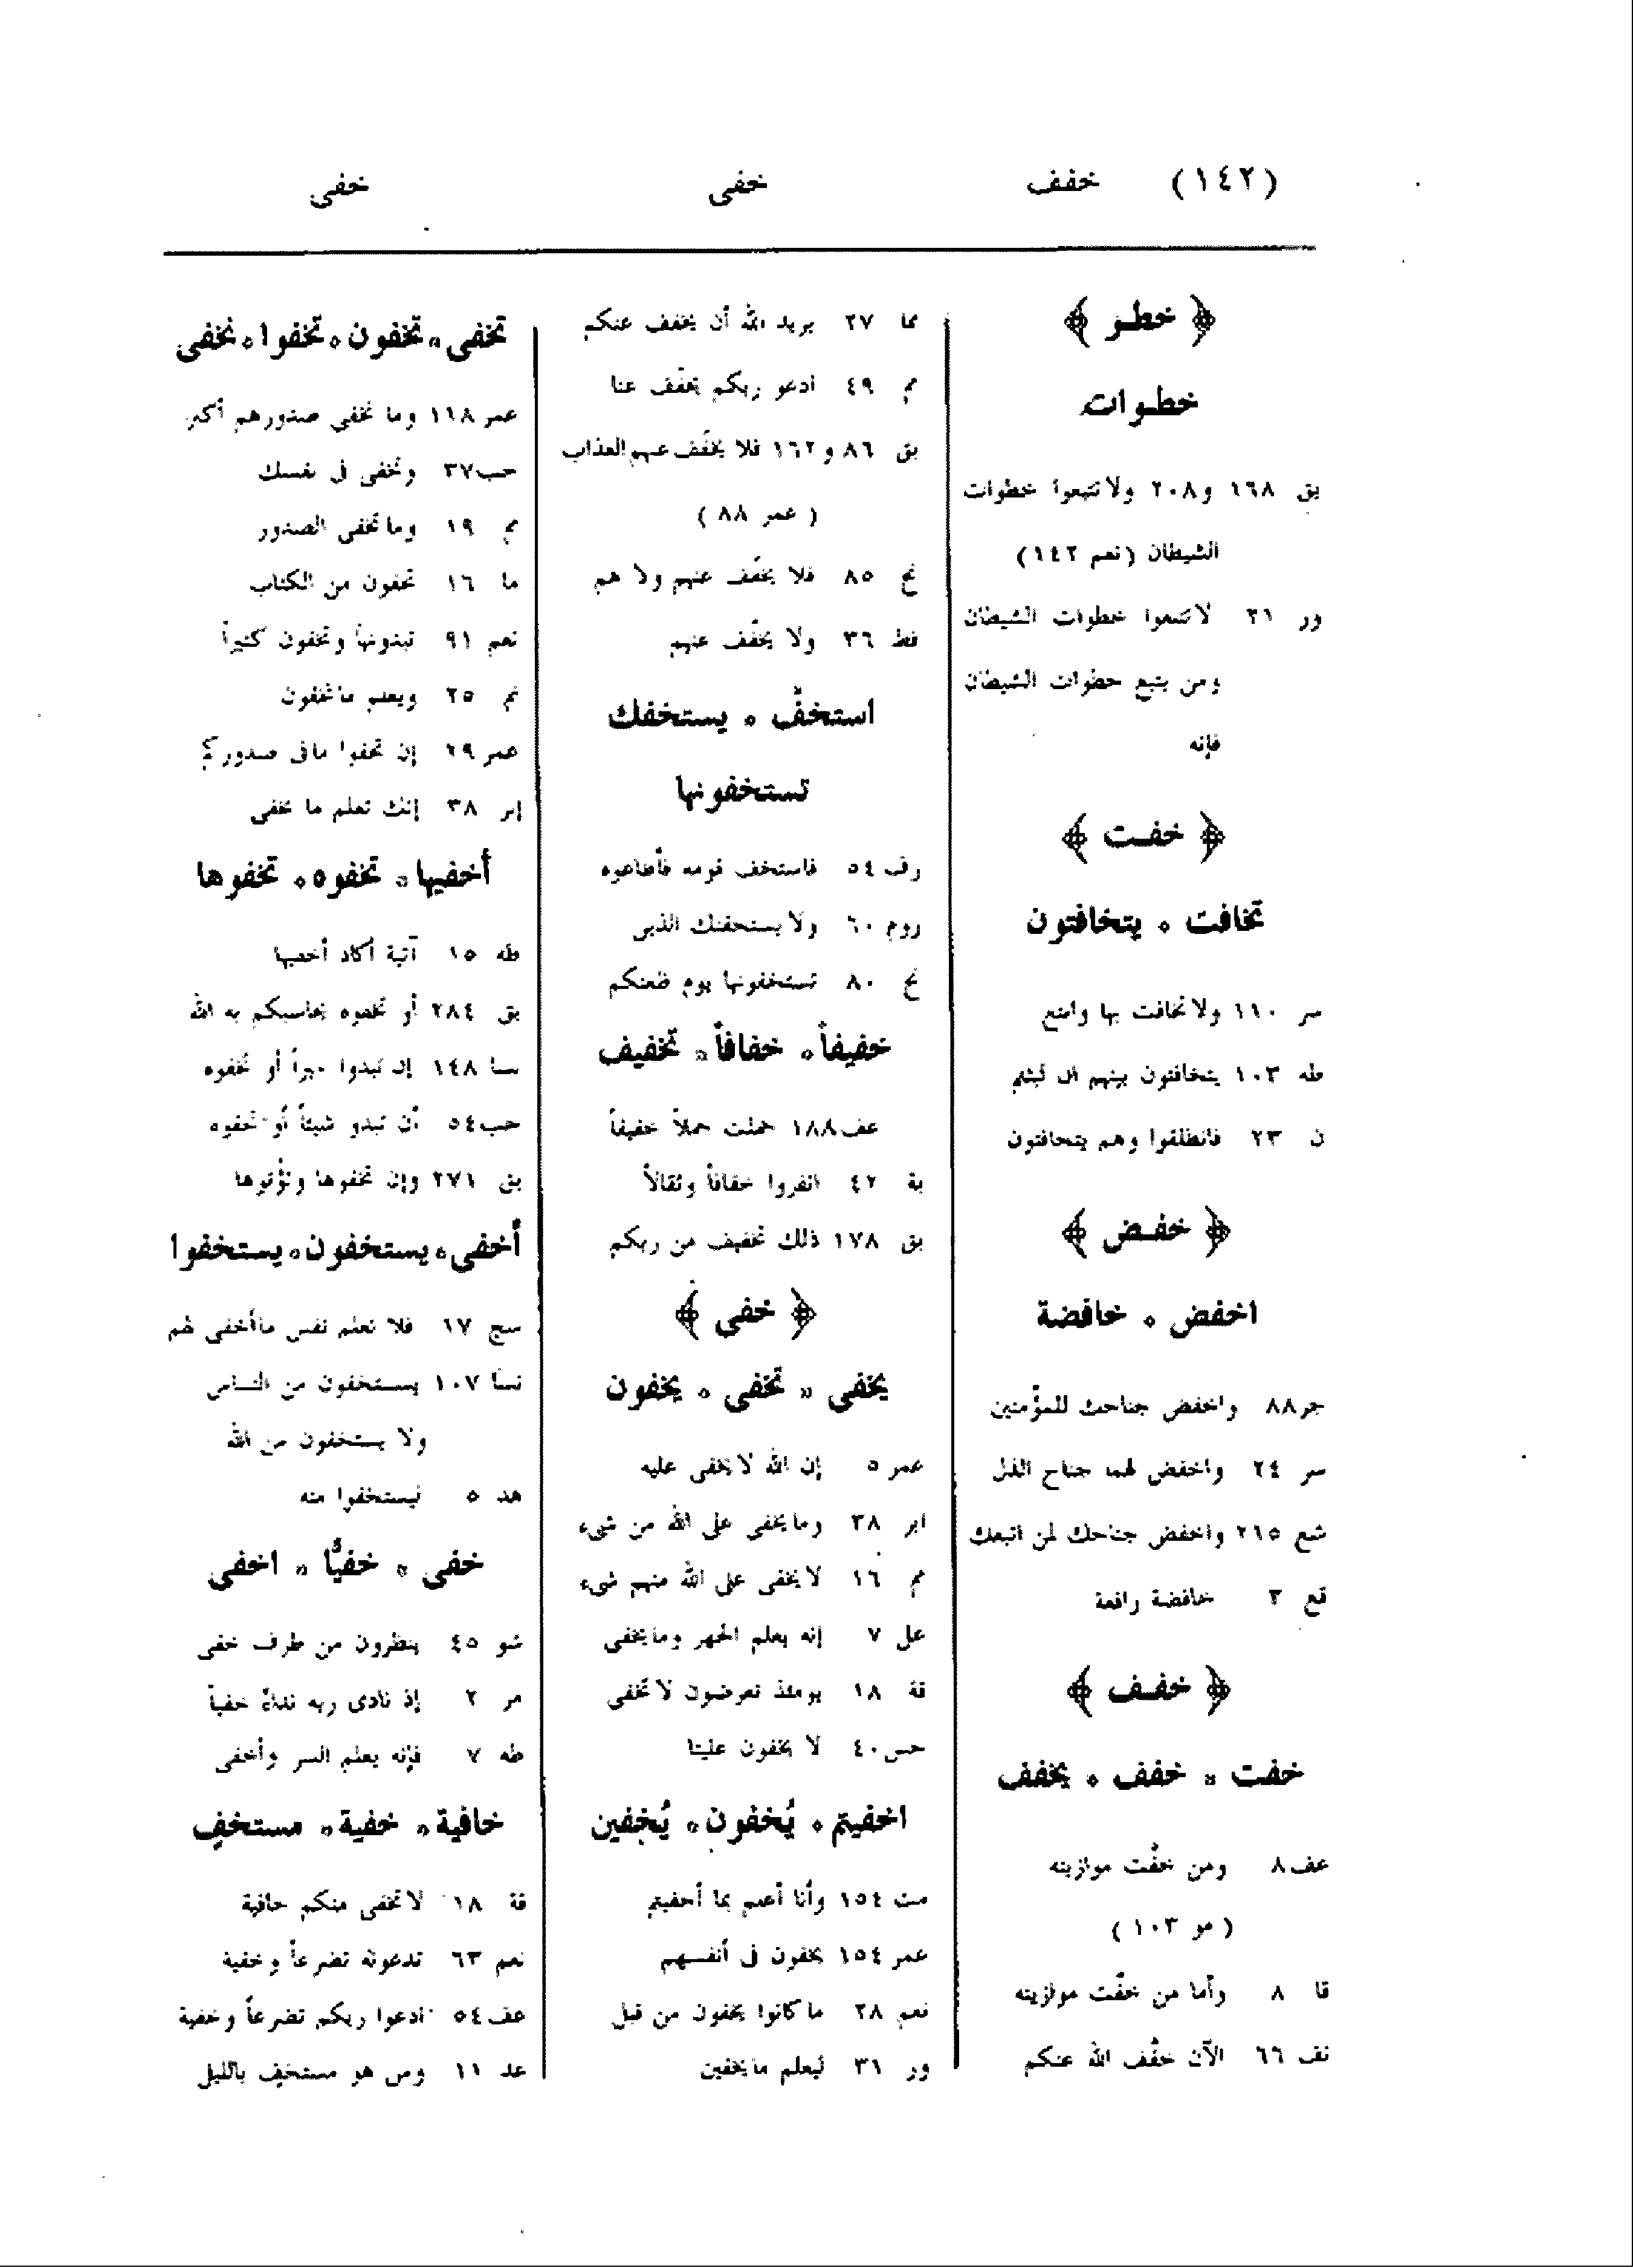 (١٤٢) خفف خفى خفى
﴿ خطو ﴾
خطوات
بق ١٦٨ و٢٠٨ ولا تتبعوا خطوات
الشيطان (نعم ١٤٢)
ور ٢١ لا تتبعوا خطوات الشيطان
ومن يتبع خطوات الشيطان
فإنه
﴿ خفت ﴾
تخافت ٠ يتخافتون
سر ١١٠ ولا تخافت بها وابتغ
طه ١٠٣ يتخافتون بينهم ان لبثتم
ن ٢٣ فانطلقوا وهم يتخافتون
﴿ خفض ﴾
اخفض ٠ خافضة
جر ٨٨ واخفض جناحك للمؤمنين
سر ٢٤ واخفض لهما جناح الذل
شع ٢١٥ واخفض جناحك لمن اتبعك
قع ٣ خافضة رافعة
﴿ خفف ﴾
خفت ٠ خفف ٠ يخفف
عف ٨ ومن خفّت موازينه
( مو ١٠٣ )
قا ٨ وأما من خفّت موازينه
نف ٦٦ الآن خفّف الله عنكم
٢٧ يريد الله أن يخفف عنكم
مم ٤٩ ادعو ربكم يخفّف عنا
بق ٨٦ و١٦٢ فلا يخفّف عنهم العذاب
( عمر ٨٨ )
نح ٨٥ فلا يخفّف عنهم ولا هم
فط ٣٦ ولا يخفّف عنهم
استخفّ ٠ يستخفك
تستخفونها
رف ٥٤ فاستخف قومه فأطاعوه
روم ٦٠ ولا يستخفنك الذين
نح ٨٠ تستخفونها يوم ظعنكم
خفيفاً ٠ خفافاً ٠ تخفيف
عف ١٨٨ حملت حملاً خفيفاً
بة ٤٢ انفروا خفافاً وثقالاً
بق ١٧٨ ذلك تخفيف من ربكم
﴿ خفى ﴾
يخفى ٠ تخفى ٠ يخفون
عمر ٥ إن الله لا يخفى عليه
ابر ٣٨ وما يخفى على الله من شىء
مم ١٦ لا يخفى على الله منهم شىء
عل ٧ إنه يعلم الجهر وما يخفى
قة ١٨ يومئذ تعرضون لا تخفى
حس ٤٠ لا يخفون علينا
اخفيتم ٠ يُخفون ٠ يُخفين
مت ١ وأنا أعلم بما أخفيتم
عمر ١٥٤ يخفون فى أنفسهم
نعم ٢٨ ما كانوا يخفون من قبل
ور ٣١ ليعلم ما يخفين
تخفى ٠ تخفون ٠ تخفوا ٠ نخفى
عمر ١١٨ وما تخفى صدورهم أكبر
حب ٣٧ وتخفى فى نفسك
مم ١٩ وما تخفى الصدور
ما ١٦ تخفون من الكتاب
نعم ٩١ تبدونها وتخفون كثيراً
نم ٢٥ ويعلم ما تخفون
عمر ٢٩ إن تخفوا ما فى صدوركم
إبر ٣٨ إنك تعلم ما نخفى
أخفيها ٠ تخفوه ٠ تخفوها
طه ١٥ آتية أكاد أخفيها
بق ٢٨٤ أو تخفوه يحاسبكم به الله
نسا ١٤٨ إن تبدوا خيراً أو تخفوه
حب ٥٤ أن تبدو شيئاً أو تخفوه
بق ٢٧١ وإن تخفوها وتؤتوها
أخفى ٠ يستخفون ٠ يستخفوا
سج ١٧ فلا تعلم نفس ما أخفى لهم
نسا ١٠٧ يستخفون من الناس
ولا يستخفون من الله
هد ٥ ليستخفوا منه
خفى ٠ خفيًّا ٠ اخفى
شو ٤٥ ينظرون من طرف خفى
مر ٢ إذ نادى ربه نداءً خفياً
طه ٧ فإنه يعلم السر وأخفى
خافية ٠ خفية ٠ مستخفٍ
قة ١٨ لا تخفى منكم خافية
نعم ٦٣ تدعونه تضرعاً وخفية
عف ٥٤ ادعوا ربكم تضرعاً وخفية
عد ١١ ومن هو مستخفٍ بالليل